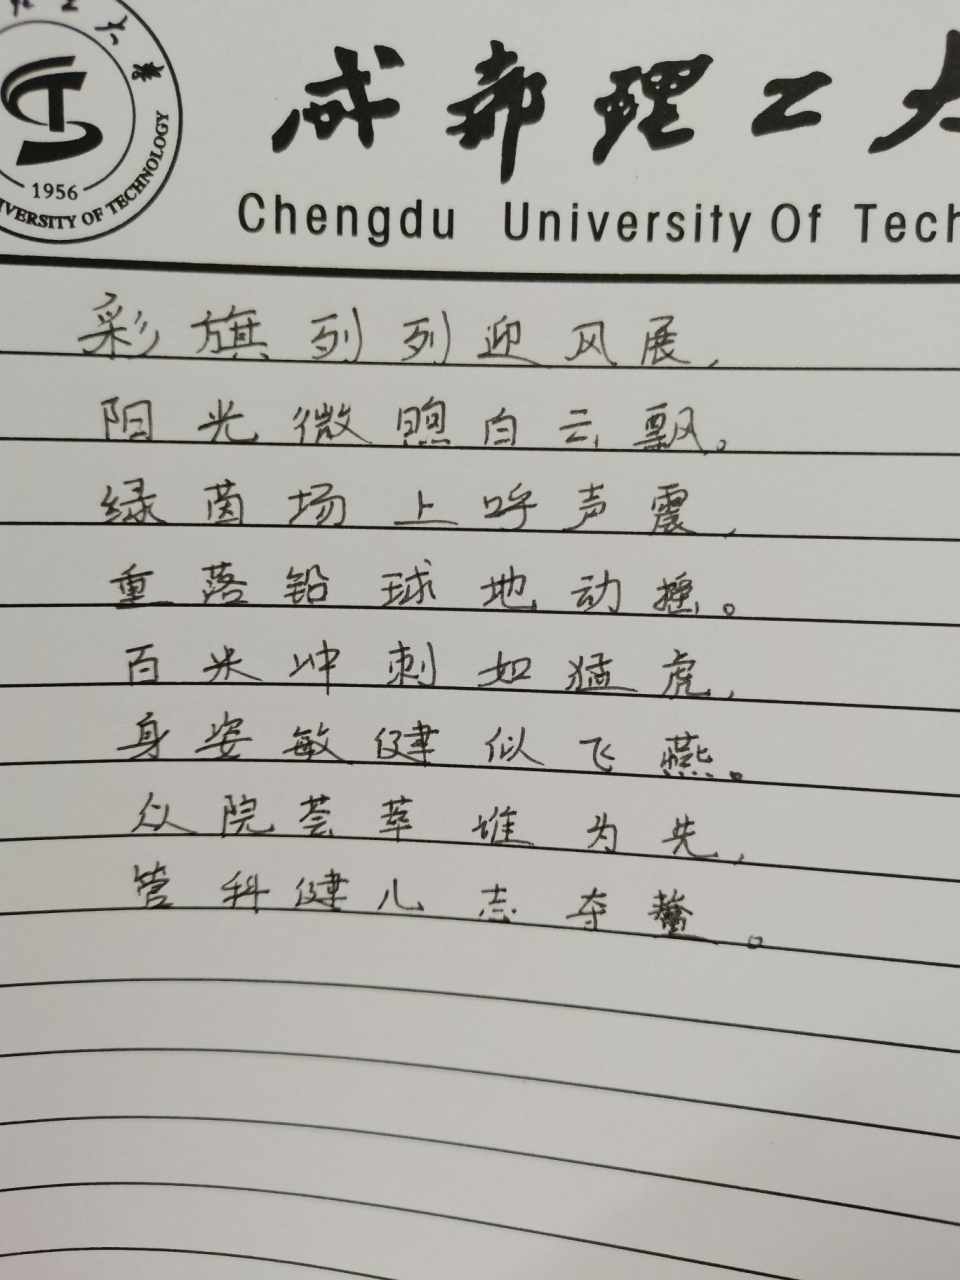 成都理工大
1956
UNIVERSITY OF TECHNOLOGY
Chengdu University Of Tech
彩旗列列迎风展，
阳光微照白云飘。
绿茵场上呼声震，
重落铅球地动摇。
百米冲刺如猛虎，
身姿敏健似飞燕。
众院荟萃谁为先，
管科健儿志夺鳌。